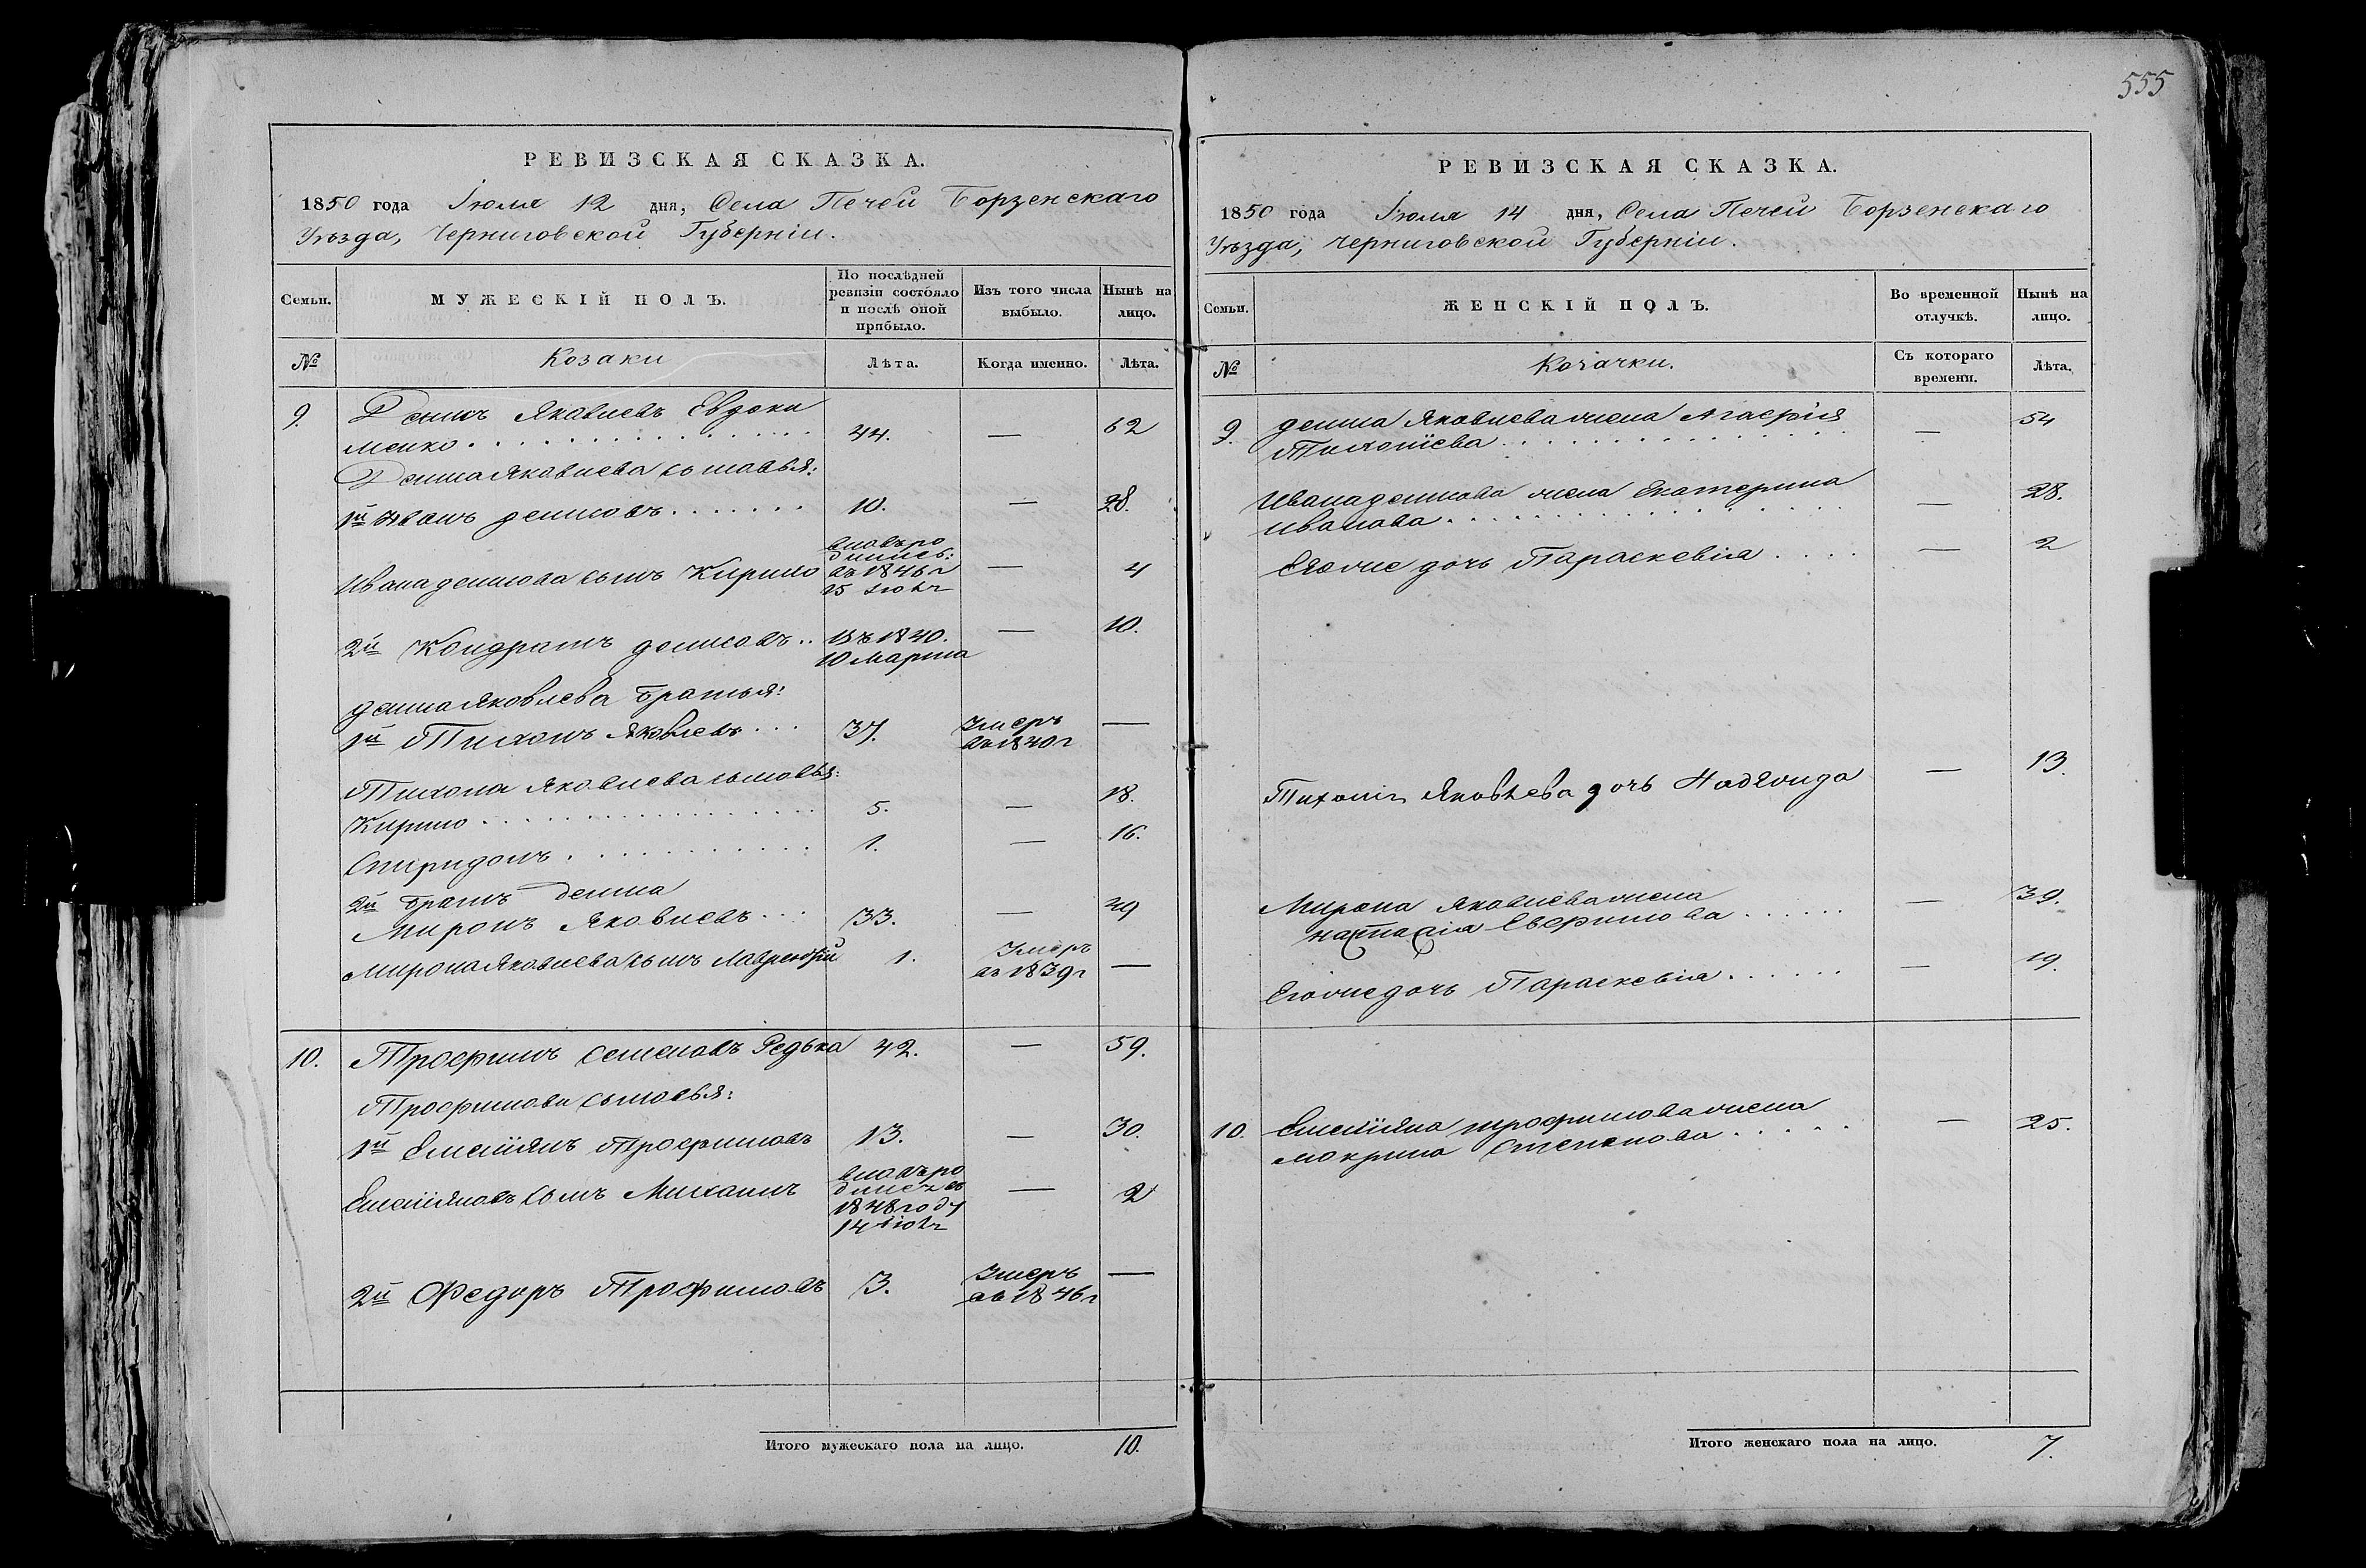 РЕВИЗСКАЯ СКАЗКА.
1850 года Іюля 12 дня, Села Печей Борзенскаго
Уѣзда, Черниговской Губерніи.
Семьи.
МУЖЕСКІЙ ПОЛЪ.
По послѣдней
ревизіи состояло
и послѣ оной
прибыло.
Изъ того числа
выбыло.
Нынѣ на
лицо.
№
Козаки
Лѣта.
Когда именно.
Лѣта.
9. Денисъ Яковлевъ Евдоки
менко . . . 44. — 62
Дениса Яковлева сыновья:
1й Иванъ Денисовъ . . . 10. — 28.
Ивана Денисова сынъ Кирило
вновь ро
дился:
въ 1846 г
15 Іюля
— 4
2й Кондратъ Денисовъ .. въ 1840.
10 Марта
— 10.
Дениса Яковлева братья:
1й Тихонъ Яковлевъ . . . 37. Умеръ
въ 1840 г —
Тихона Яковлева сыновья:
Кирило . . . 5. — 18.
Спиридонъ . . . 1. — 16.
2й братъ Дениса
Миронъ Яковлевъ . . . 33. — 49
Мирона Яковлева сынъ Лаврентій 1. Умеръ
въ 1839 г —
10. Трофимъ Семеновъ Редька 42. — 59.
Трофимова сыновья:
1й Емелиянъ Трофимовъ 13. — 30.
Емелияновъ сынъ Михаилъ
вновь ро
дился въ
1848 году
14 Іюля
— 2
2й Федоръ Трофимовъ 3. Умеръ
въ 1846 г —
Итого мужескаго пола на лицо. 10.
555
РЕВИЗСКАЯ СКАЗКА.
1850 года Іюля 14 дня, Села Печей Борзенскаго
Уѣзда, Черниговской Губерніи.
Семьи.
ЖЕНСКІЙ ПОЛЪ.
Во временной
отлучкѣ.
Нынѣ на
лицо.
№
Козачки.
Съ котораго
времени.
Лѣта.
9. Дениса Яковлева жена Агафія
Тихонієва . . . — 54
Ивана Денисова жена Екатерина
Иванова . . . — 28.
Его же дочь Параскевія . . . . — 2
Тихона Яковлева дочь — 13.
Мирона Яковлева жена
Настасія Ефимова . . . — 39.
Его же дочь Параскевія . . . — 19.
10. Емелияна Трофимова жена
Мокрина Степанова . . . — 25.
Итого женскаго пола на лицо. 7.